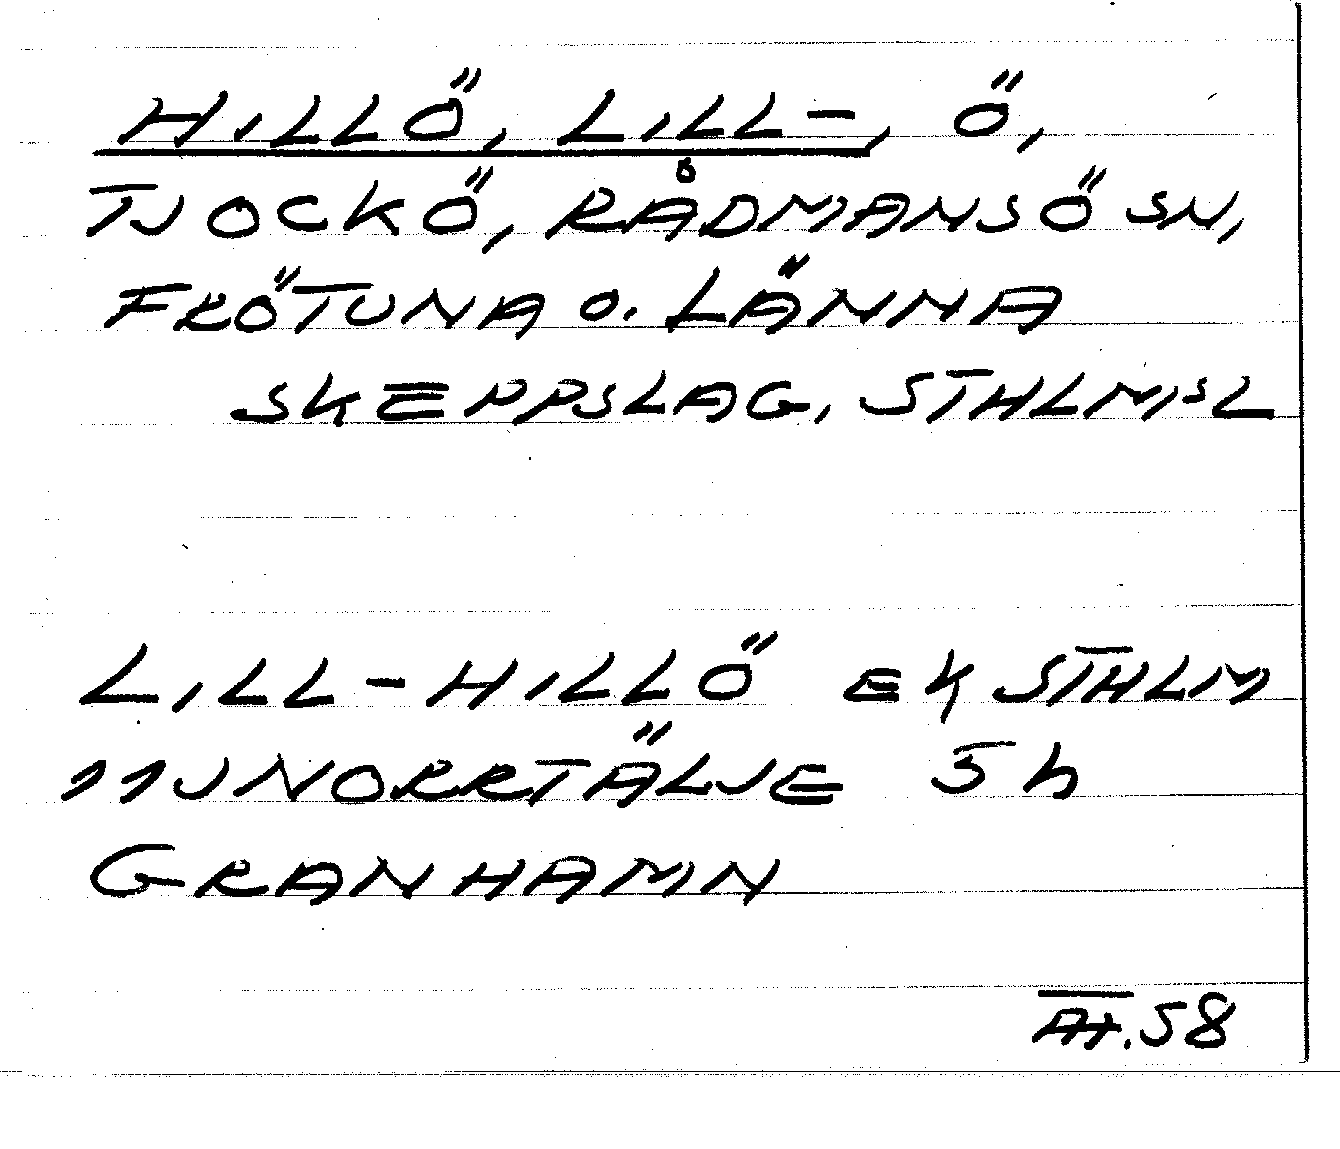 HILLÖ, LILL-, Ö,
TJOCKÖ, RÅDMANSÖ SN,
FRÖTUNA O. LÄNNA
SKEPPSLAG, STHLMSL
LILL-HILLÖ EK STHLM
11J NORRTÄLJE 5h
GRANHAMN
AH.58